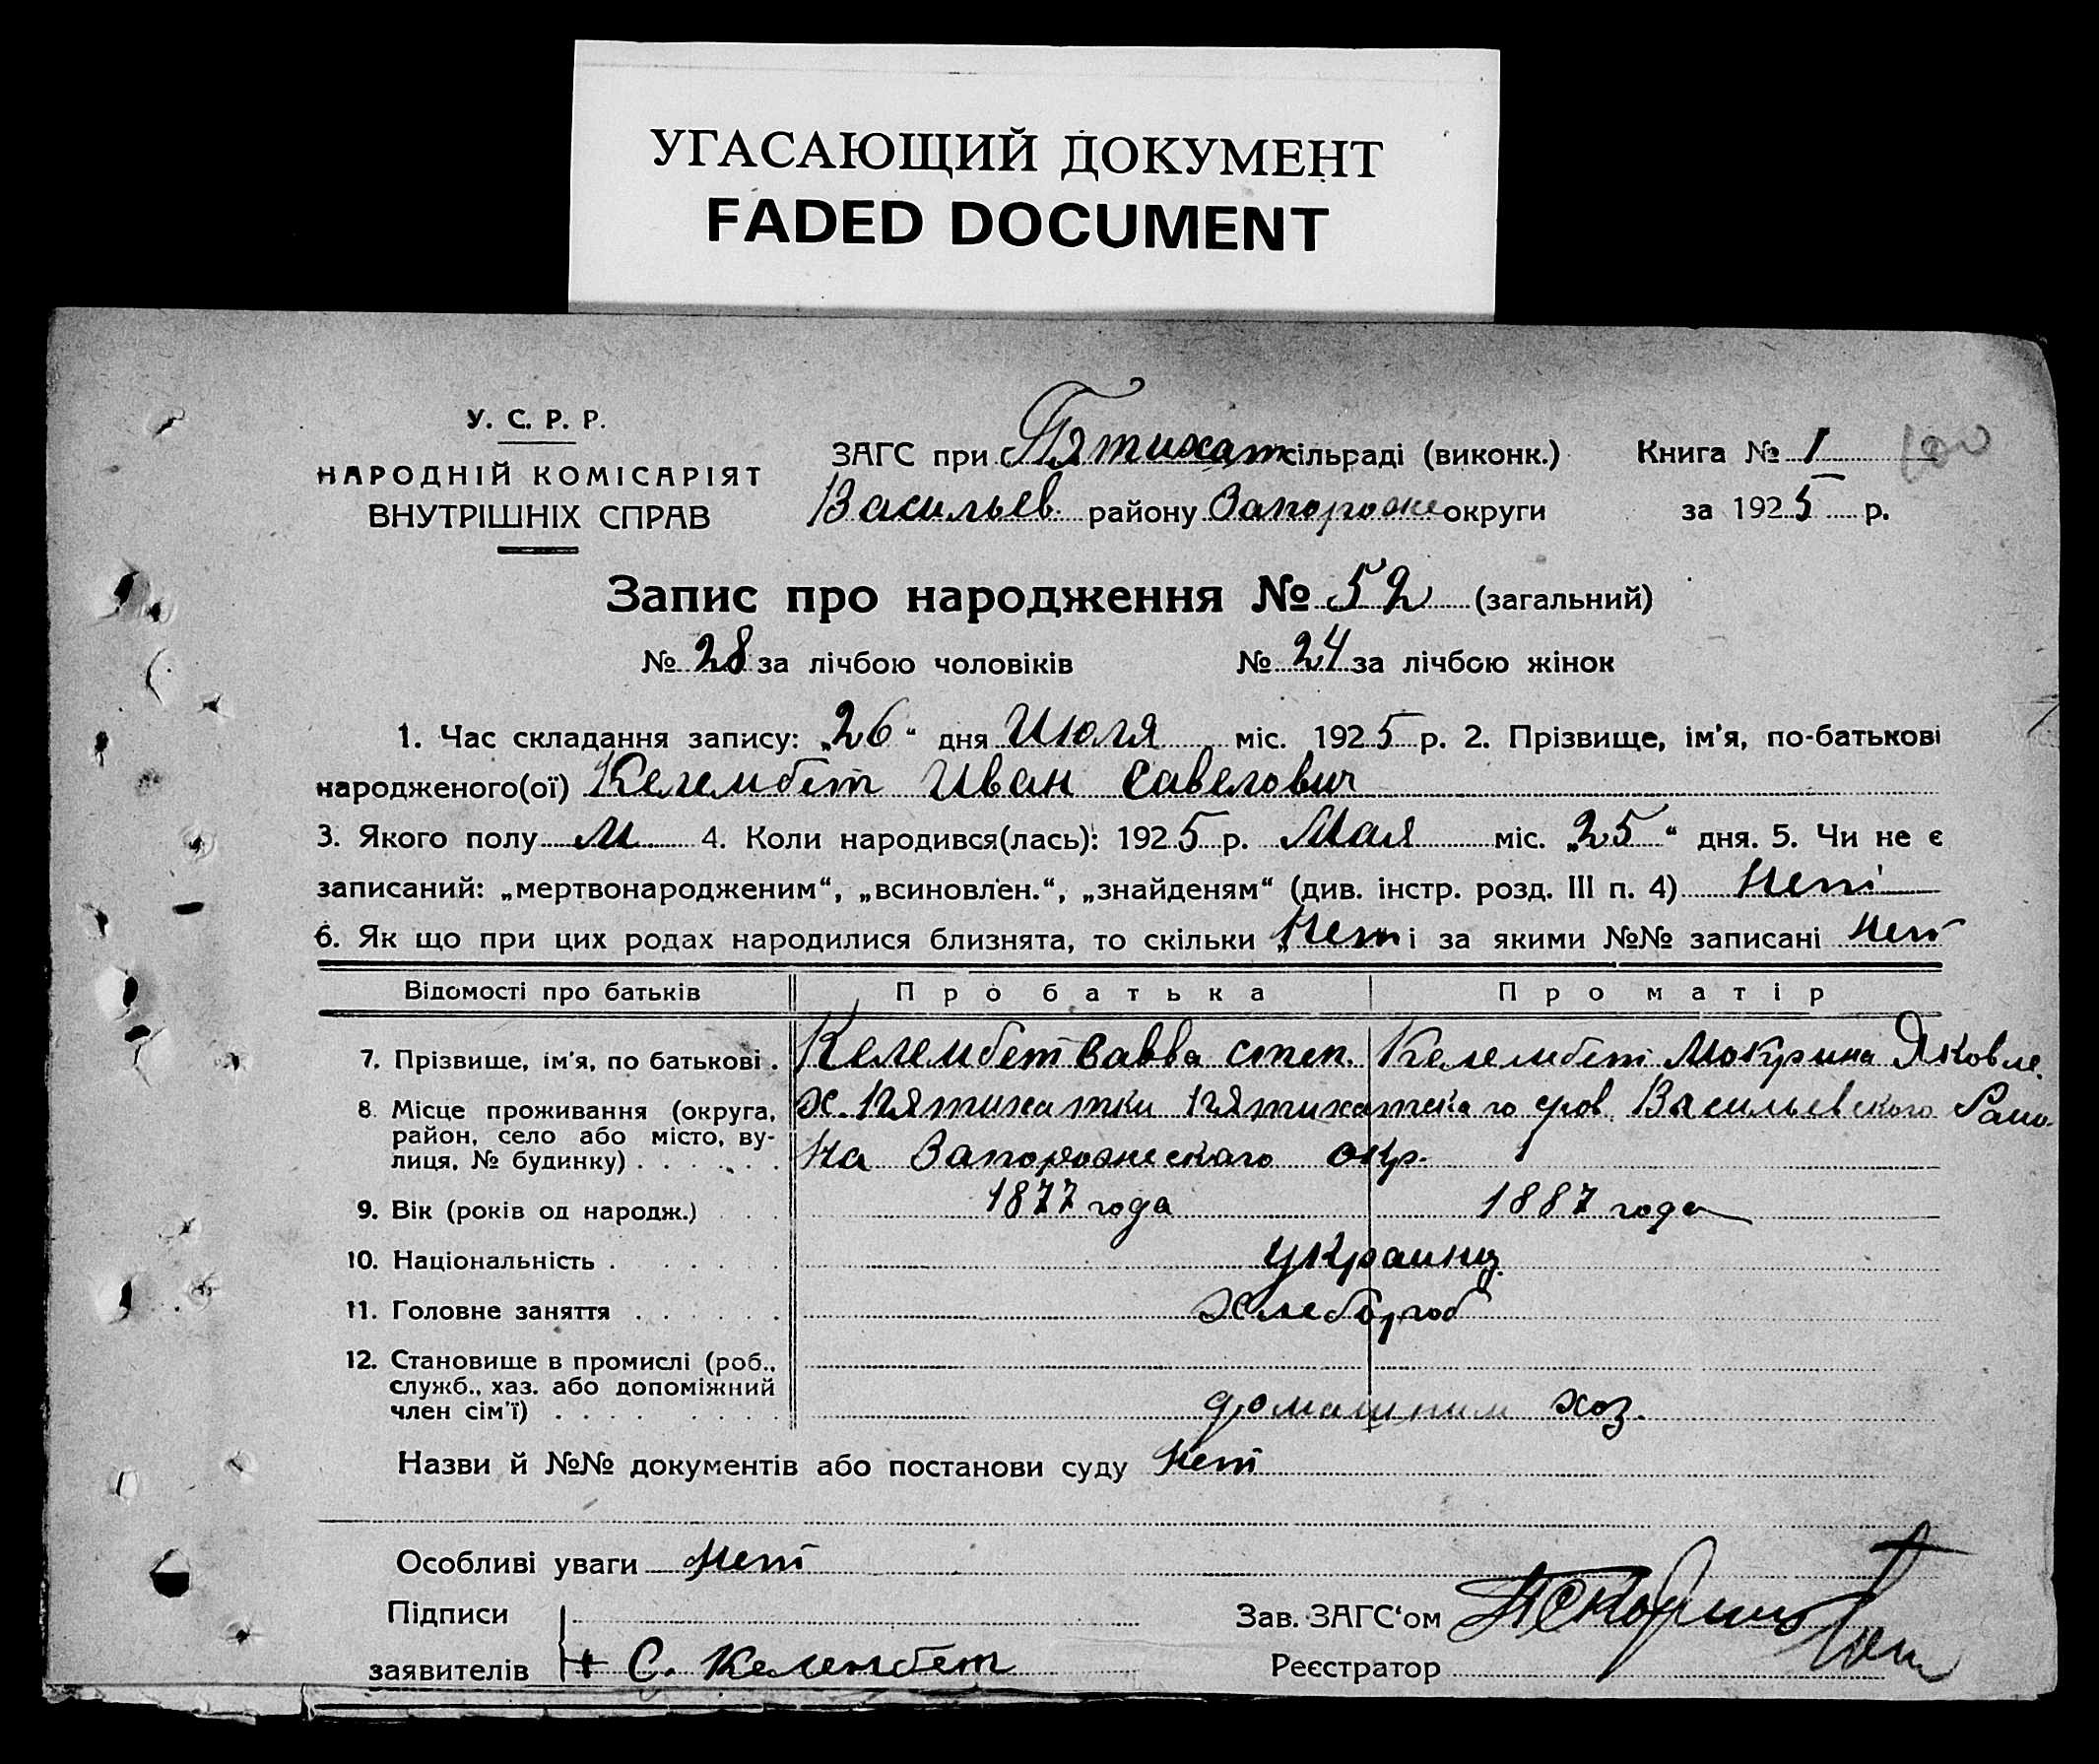 УГАСАЮЩИЙ ДОКУМЕНТ
FADED DOCUMENT
У. С. Р. Р.
НАРОДНІЙ КОМІСАРІЯТ
ВНУТРІШНІХ СПРАВ
ЗАГС при Пятихат сільраді (виконк.)
Васильев. району Запорожс округи
Книга № I 100
за 1925 р.
Запис про народження № 52 (загальний)
№ 28 за лічбою чоловіків № 24 за лічбою жінок
1. Час складання запису: „26“ дня Июля міс. 1925 р. 2. Прізвище, ім'я, по-батькові
народженого(ої) Келембет Иван Савелович
3. Якого полу м 4. Коли народився(лась): 1925 р. Мая міс. „25“ дня. 5. Чи не є
записаний: „мертвонародженим“, „всиновлен.“, „знайденям“ (див. інстр. розд. III п. 4) Нет
6. Як що при цих родах народилися близнята, то скільки Нет і за якими №№ записані Нет
Відомості про батьків Про батька Про матір
7. Прізвище, ім'я, по батькові . Келембет Савва степ. Келембет Мокрина Яковле.
8. Місце проживання (округа, район, село або місто, ву-лиця, № будинку) . . . . . . х. Пятихатки Пятихатскаго Васильевского
На Запорожскаго окр.
9. Вік (років од народж.) 1877 года 1887 года
10. Національність . украинц.
11. Головне заняття хлебороб
12. Становище в промислі (роб.,
служб., хаз. або допоміжний
член сім'ї) домашним хоз.
Назви й №№ документів або постанови суду Нет
Особливі уваги Нет
Підписи
заявителів + С. Келембет
Зав. ЗАГС'ом
Реєстратор